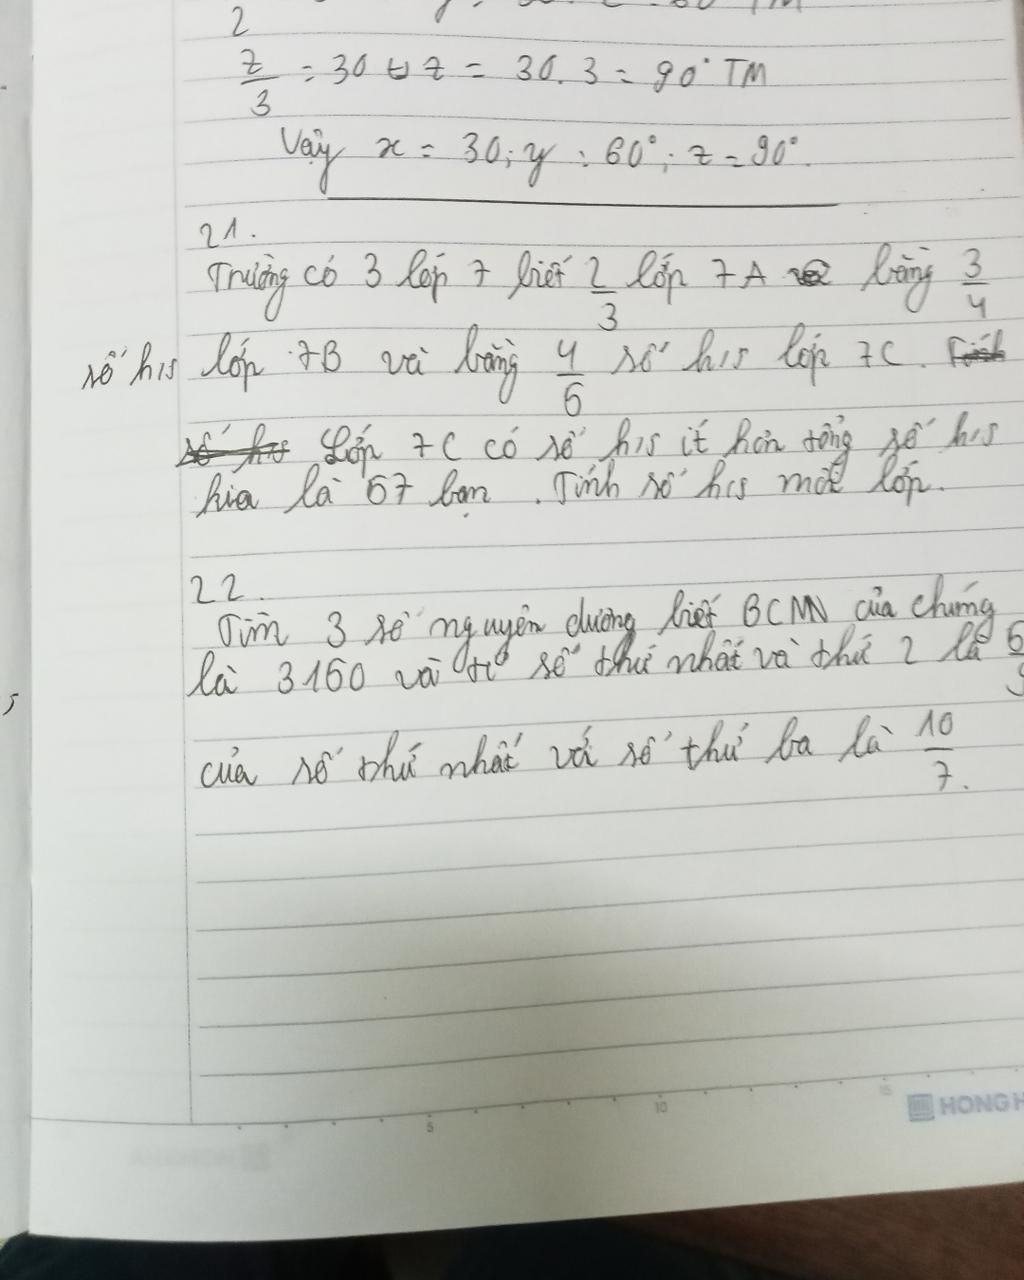 2
z/3 = 30 ↔ z = 30. 3 = 90° TM
Vậy x = 30; y = 60°; z = 90°.
21.
Trường có 3 lớp 7 biết 2/3 lớp 7A bằng 3/4
số h/s lớp 7B và bằng 4/5 số h/s lớp 7C.
Lớp 7C có số h/s ít hơn tổng số h/s
kia là 57 bạn. Tính số h/s mỗi lớp.
22.
Tìm 3 số nguyên dương biết BCNN của chúng
là 3150 và tỉ số thứ nhất và thứ 2 là 5/9
của số thứ nhất với số thứ ba là 10/7.
5
10
15
HONG H